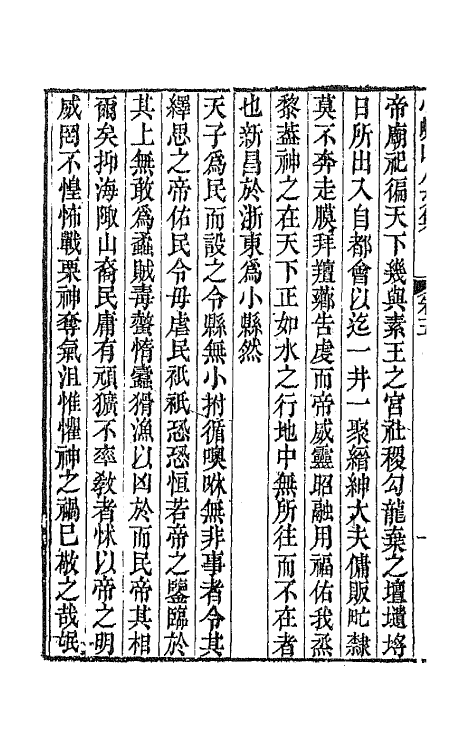 帝廟祀徧天下幾與素王之宮社稷勾龍棄之壇壝埒
日所出入自都會以迄一井一聚縉紳大夫傭販甿隸
莫不奔走膜拜羶薌告虔而帝威靈昭融用福佑我烝
黎葢神之在天下正如水之行地中無所往而不在者
也新昌於浙東爲小縣然
天子爲民而設之令縣無小拊循噢咻無非事者令其
繹思之帝佑民令毋虐民祇祇恐恐恒若帝之鑒臨於
其上無敢爲蟊賊毒螫惰蠹猾漁以凶於而民帝其相
爾矣抑海陬山裔民庸有頑獷不率敎者怵以帝之明
威罔不惶怖戰栗神奪氣沮惟懼神之禍已敬之哉氓